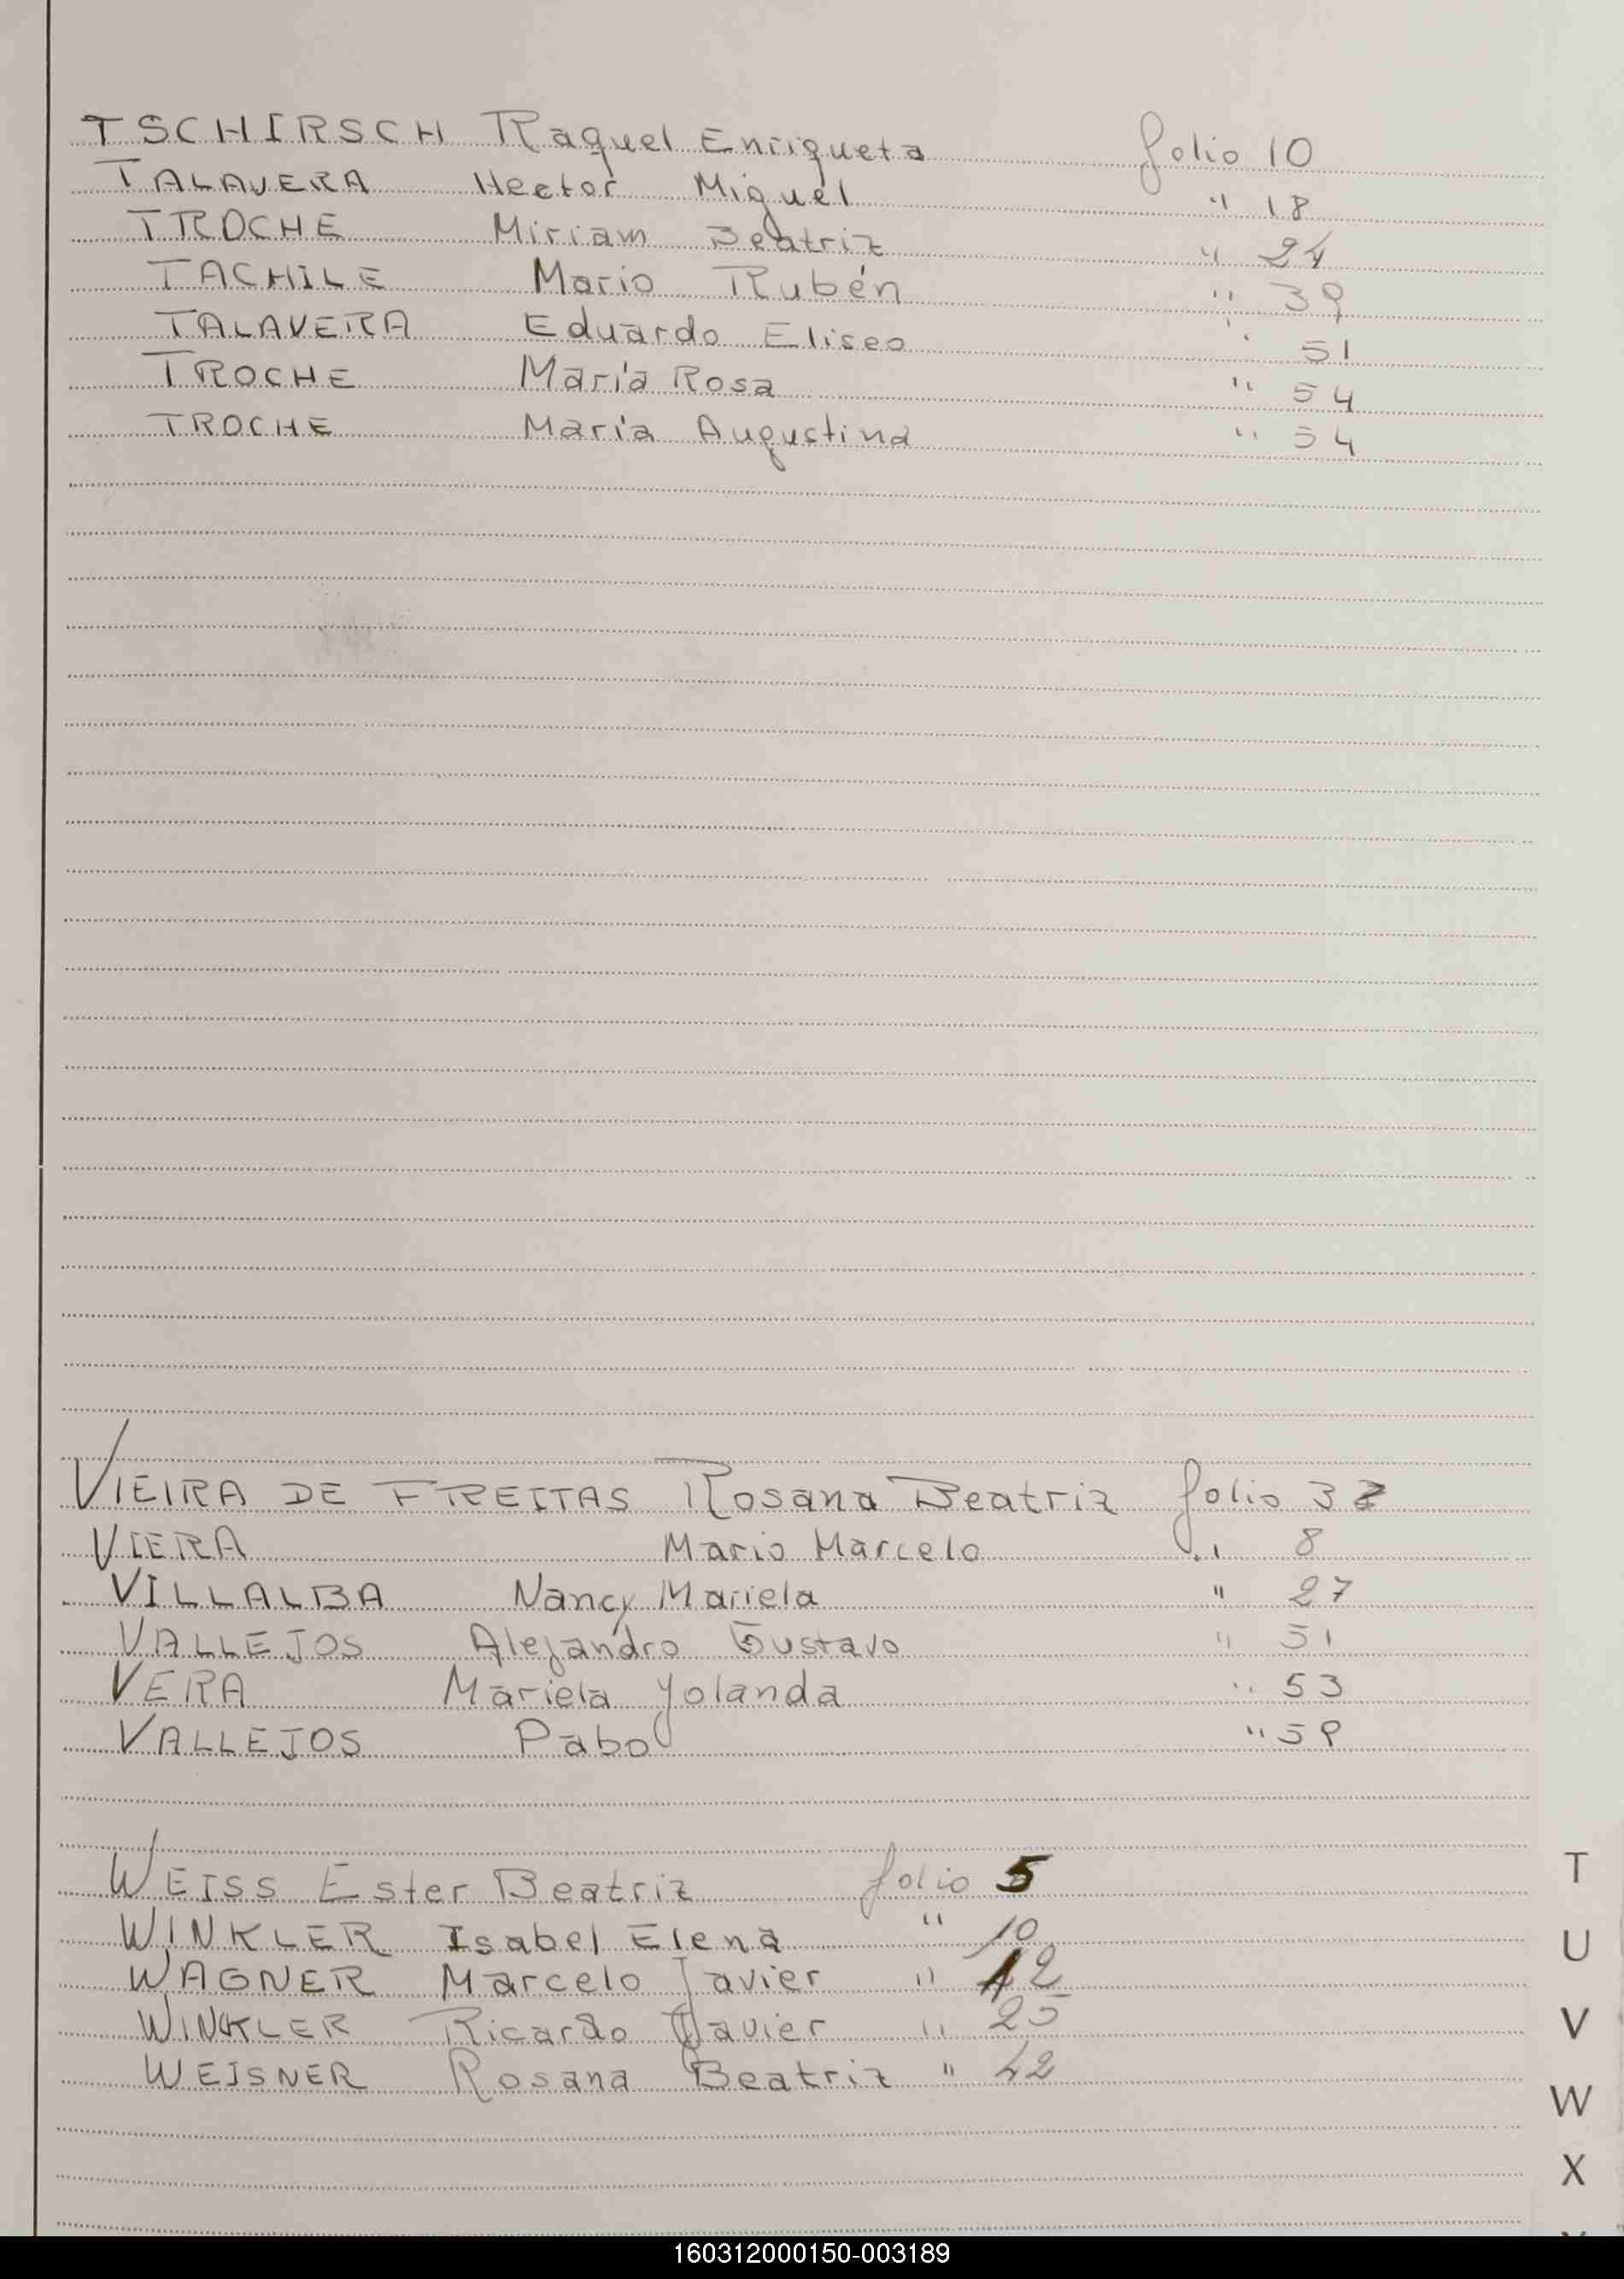 TSCHIRSCH Raquel Enriqueta folio 10
TALAVERA Hector Miguel " 18
TROCHE Miriam Beatriz " 24
TACHILE Mario Rubén " 39
TALAVERA Eduardo Eliseo " 51
TROCHE María Rosa " 54
TROCHE María Augustina " 54
VIEIRA DE FREITAS Rosana Beatriz folio 32
VIERA Mario Marcelo " 8
VILLALBA Nancy Mariela " 27
VALLEJOS Alejandro Gustavo " 51
VERA Mariela Yolanda " 53
VALLEJOS Pabo " 59
WEISS Ester Beatriz folio 5
WINKLER Isabel Elena " 10
WAGNER Marcelo Javier " 12
WINKLER Ricardo Javier " 25
WEISNER Rosana Beatriz " 42
T
U
V
W
X
160312000150-003189